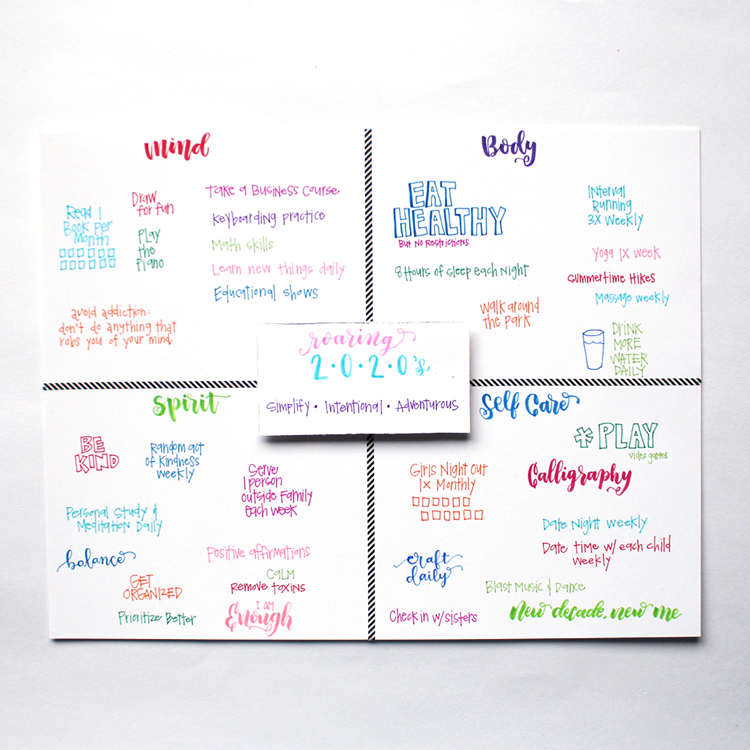 Mind
Read 1
Book per
Month
Draw
for fun
Play
the
Piano
Take a Business Course
Keyboarding practice
Math skills
Learn new things daily
Educational shows
avoid addiction:
don't do anything that
robs you of your mind
Body
EAT
HEALTHY
But No Restrictions
8 Hours of sleep each Night
Interval
Running
3X Weekly
Yoga 1X week
Summertime Hikes
Massage weekly
Walk around
the Park
DRINK
MORE
WATER
DAILY
roaring
2·0·2·0's
Simplify · Intentional · Adventurous
Spirit
BE
KIND
Random act
of Kindness
weekly
Serve
1 person
outside Family
each week
Personal Study &
Meditation Daily
balance
Positive affirmations
GET
ORGANIZED
CALM
Remove toxins
Prioritize Better
I AM
Enough
Self Care
* PLAY
video games
Girls Night Out
1x Monthly
Calligraphy
Date Night weekly
Date time w/ each child
weekly
craft
daily
Blast Music & Dance
Check in w/sisters
New decade, new me